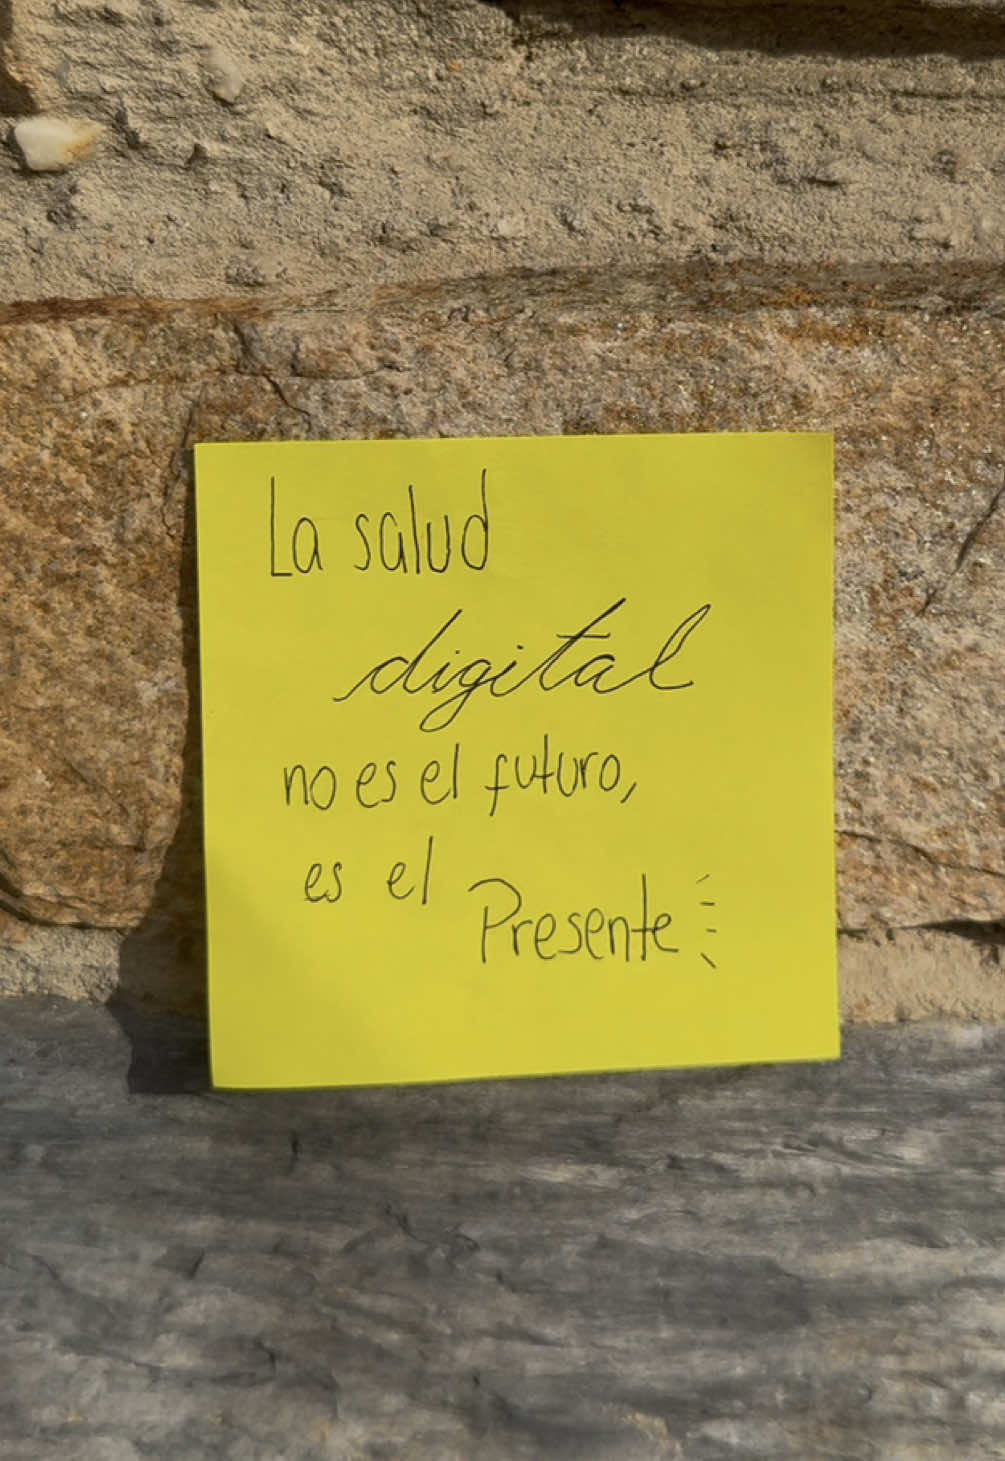 La salud
digital
no es el futuro,
es el Presente